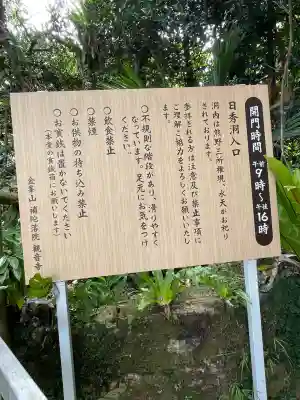 開門時間 午前9時〜午後16時
日秀洞入口
洞内は熊野三所権現、水天がお祀り
されております。
参拝される方は注意及び禁止事項に
ご理解ご協力をよろしくお願いいたし
ます。
〇不規則な階段があり、滑りやすく
なっています。足元にお気をつけ
ください。
〇飲食禁止
〇禁煙
〇お供物の持ち込み禁止
〇お賽銭は置かないでください
(本堂の賽銭箱にお願いします)
金峯山 補陀落院 観音寺